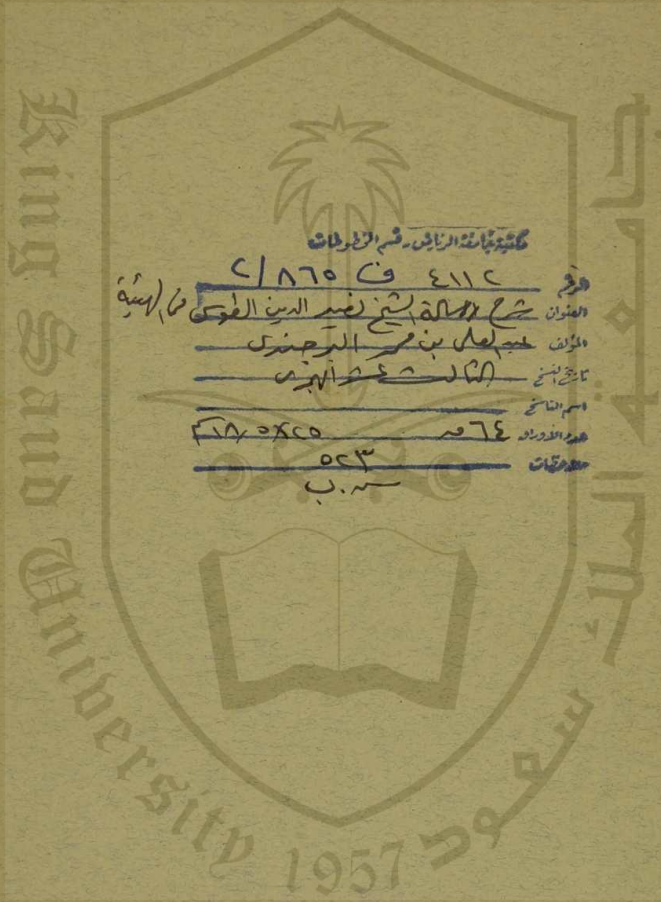 مكتبة جامعة الرياض - قسم المخطوطات
الرقم ٤١١٢ ف ٨٦٥/٢
العنوان شرح رسالة الشيخ نصير الدين الطوسي في الهيئة
المؤلف عبد العلي بن محمد البرجندي
تاريخ النسخ الثالث عشر الهجري
اسم الناسخ
عدد الأوراق ٦٤ ق ٢٥×١٨٫٥
ملاحظات ٥٢٣
King Saud University 1957
جامعة الملك سعود